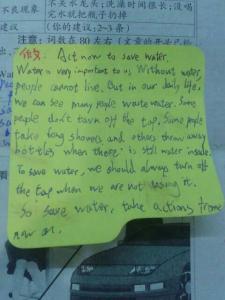 不良现象
不关水龙头;洗澡时间很长;没喝
完水就把瓶子扔掉
建议
(你的建议:2~3条)
注意: 词数在80左右
Act now to save water.
Water is very important to us. Without water,
people cannot live. But in our daily life,
we can see many people waste water. Some
people don't turn off the tap. Some people
take long showers and others throw away
bottles when there is still water inside.
To save water, we should always turn off
the tap when we are not using it.
So save water, take actions from
now on.